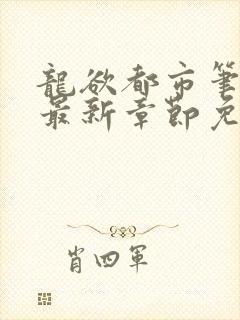 龍欲都市筆
最新章節免
肖四軍